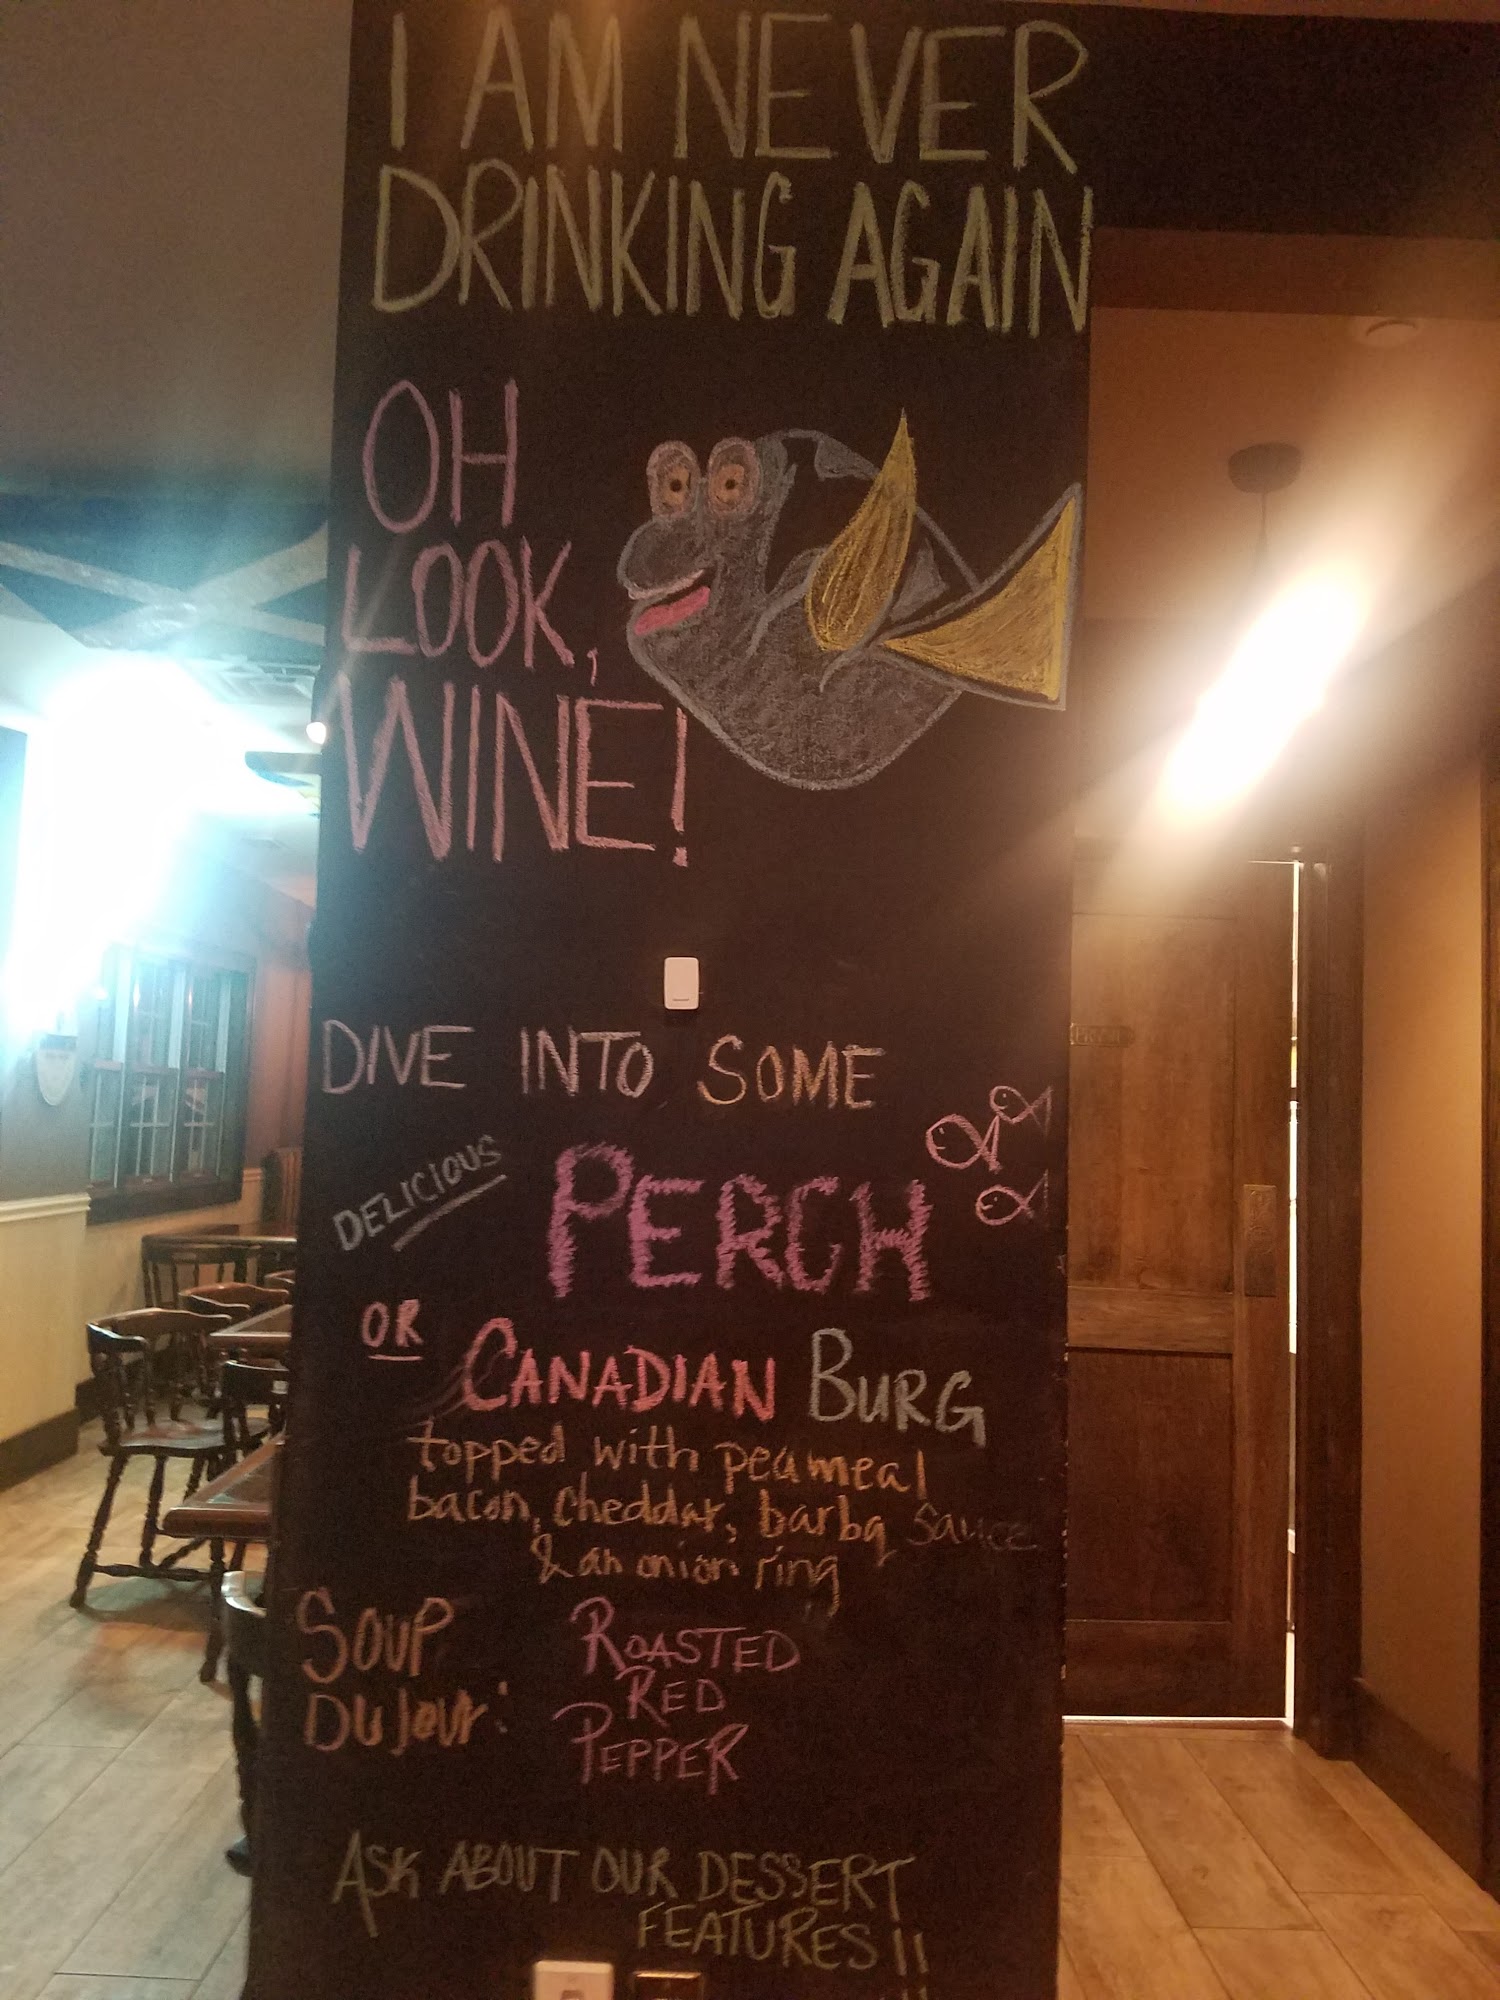 I AM NEVER
DRINKING AGAIN
OH
LOOK,
WINE!
DIVE INTO SOME
DELICIOUS
PERCH
OR
CANADIAN BURG
topped with peameal
bacon, cheddar, barbq sauce
& an onion ring
SOUP
DU JOUR:
ROASTED
RED
PEPPER
ASK ABOUT OUR DESSERT
FEATURES!!